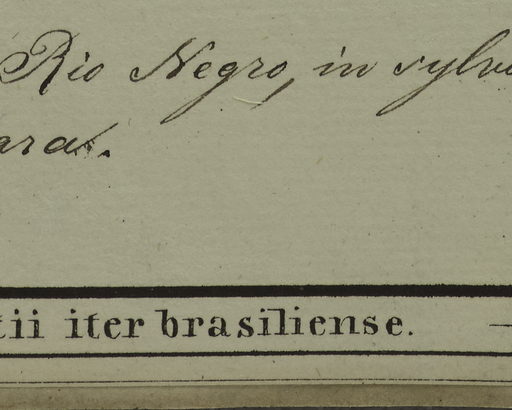 Rio Negro, in sylv
aras.
tii iter brasiliense.